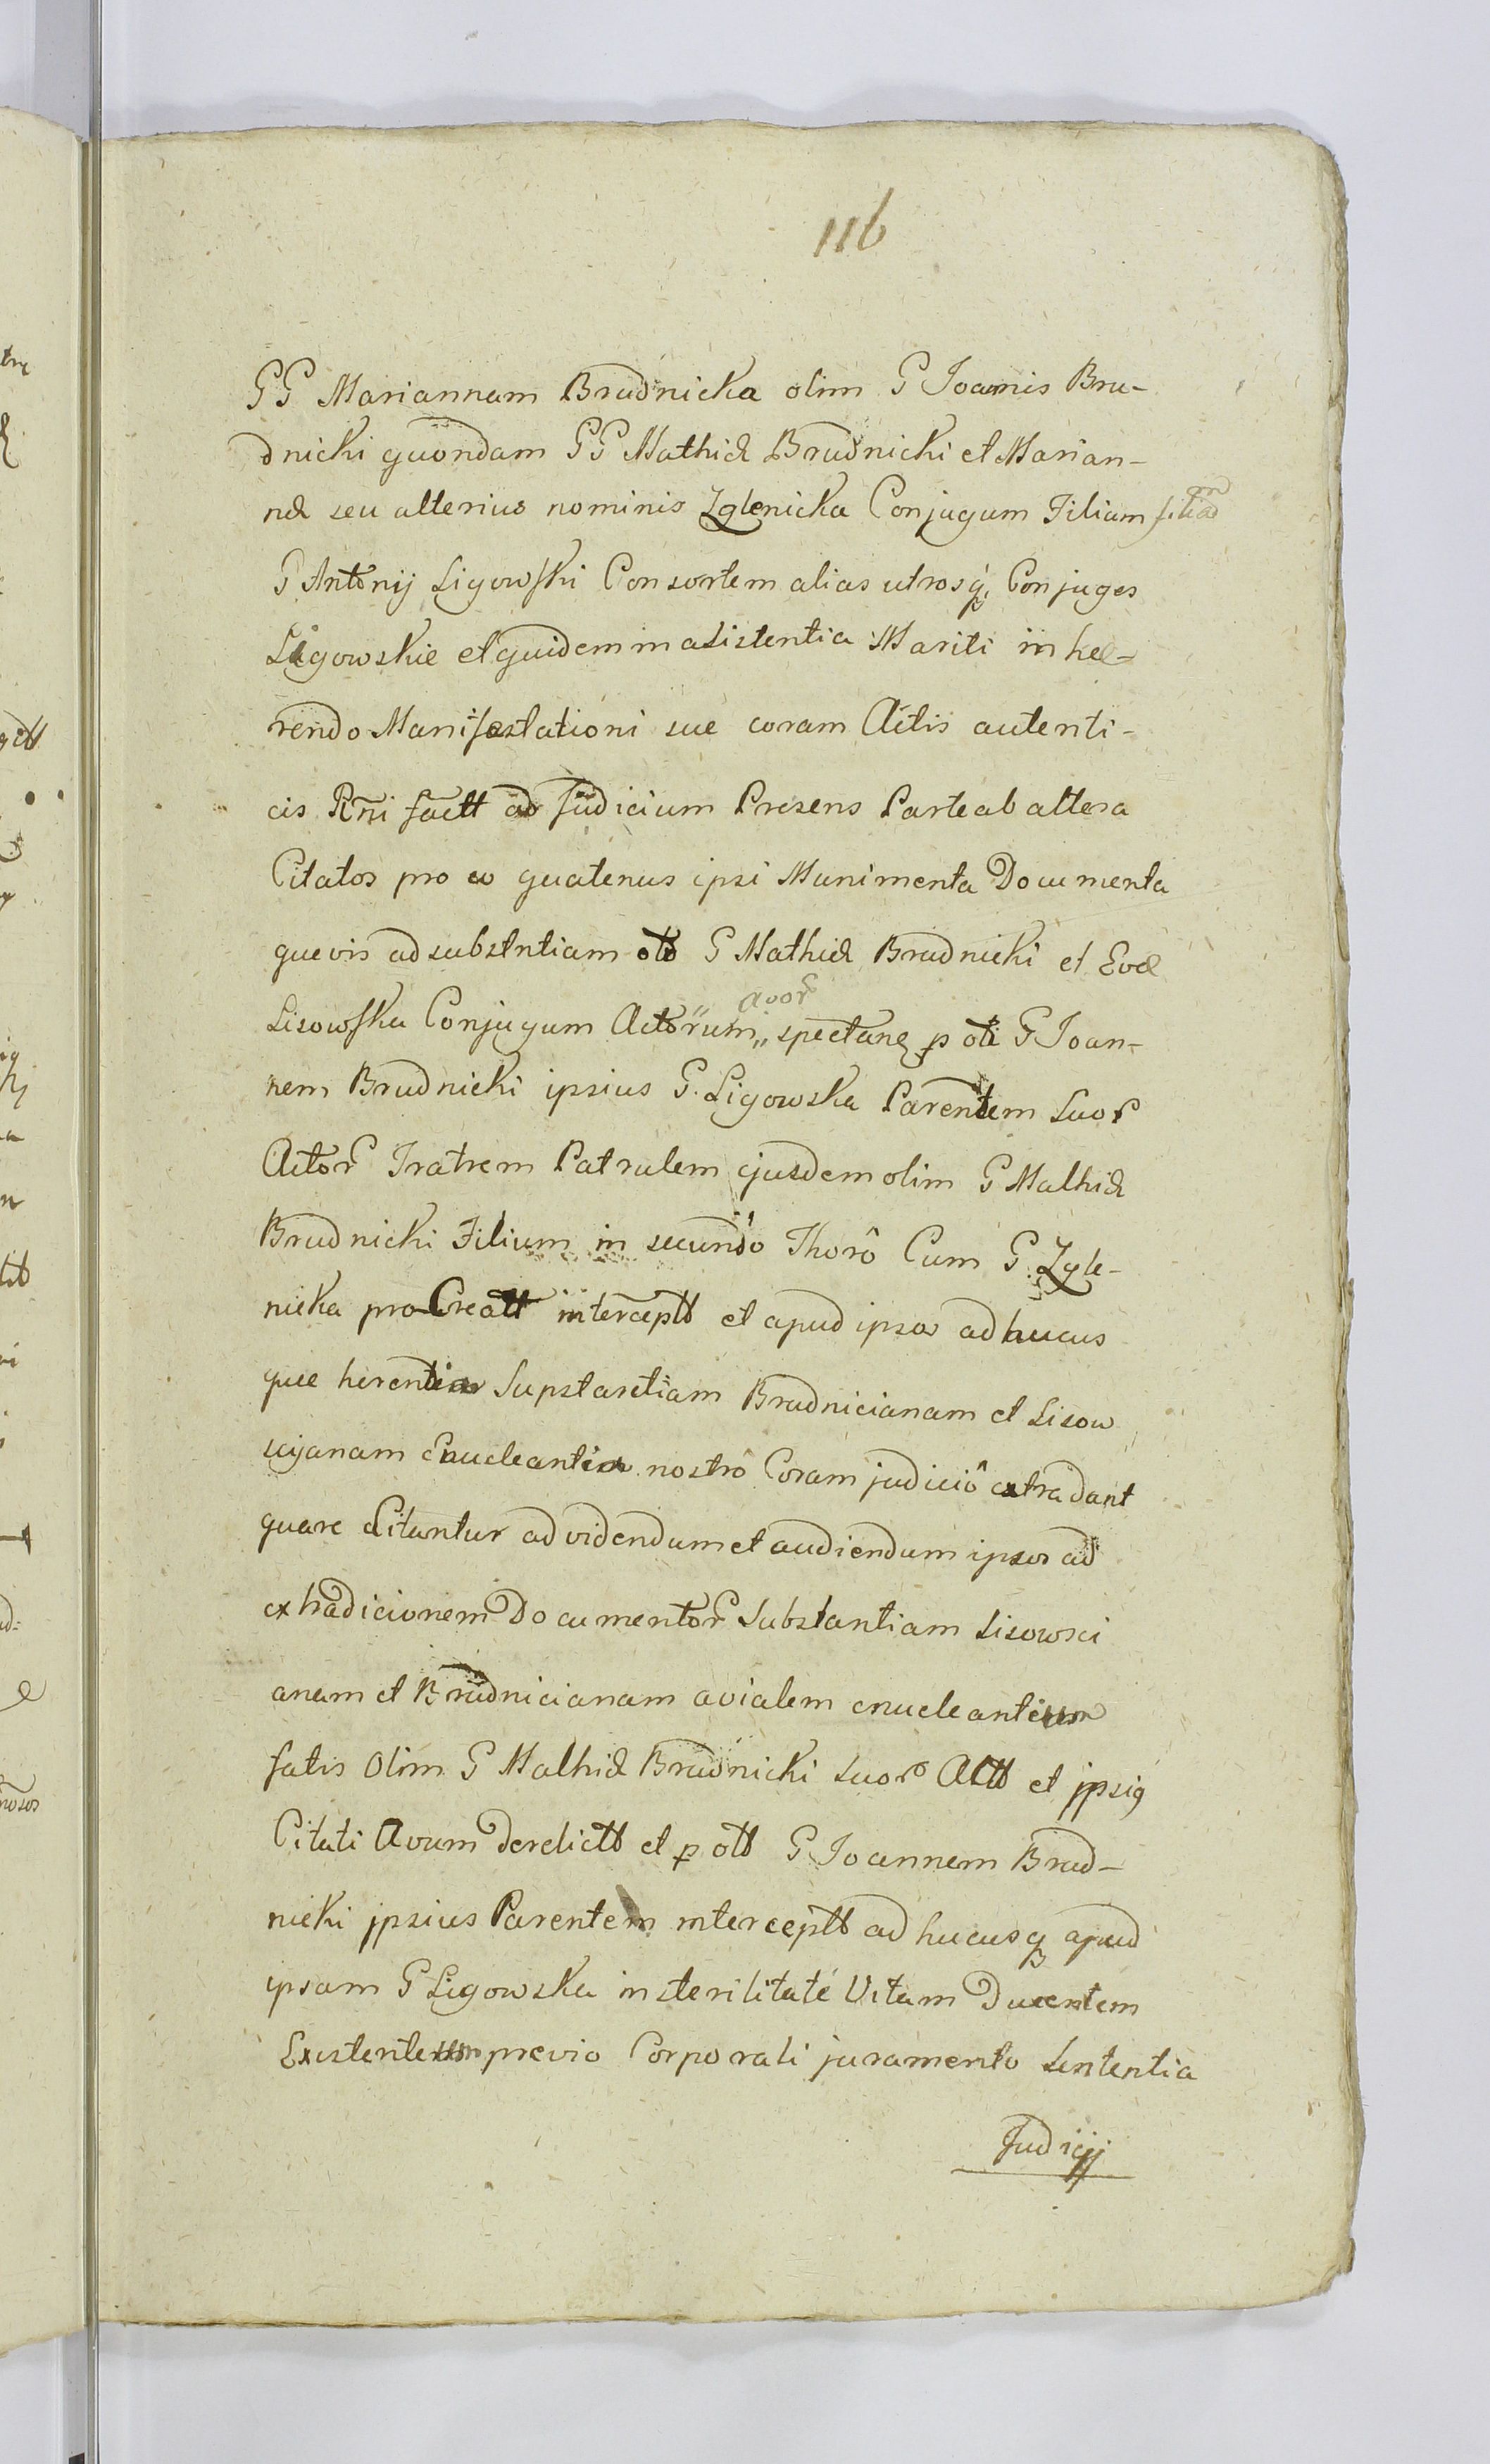 116
GG Mariannam Brudnicka olim G Joannis Bru-
dnicki quondam GG Mathiæ Brudnicki et Marian-
næ seu alterius nominis Zglenicka Conjugum Filiam
G Antonij Ligowski Consortem alias utrosq Conjuges
Ligowskie et quidem in asistentia Mariti in hæ-
rendo Manifestationi sue coram Actis autenti-
cis Rni factt ad Judicium Presens Parte ab altera
Citatos pro eo quatenus ipsi Munimenta Documenta
quevis ad substntiam olto G Mathiæ Brudnicki et Evæ
Lisowska Conjugum Actorum avor spectanę p olt G Joan-
nem Brudnicki ipsius G. Ligowska Parentem suor
Actor Fratrem Patrulem ejusdem olim G Mathiæ
Brudnicki Filium in secundo Thorô Cum G. Zgle-
nicka pro Creatt intercepttt et apud ipsos ad hucus
que herentia Supstantiam Brudnicianam et Lisow
scijanam Enucleantia nostrô Coram judiciô extradant
quare Citantur ad videndum et audiendum ipsos ad
extradicionem Documentor Substantiam Lisowsci
anam et Brudnicianam avialem enucleantium
fatis Olim G Mathiæ Brudnicki suor Actt et jpsig
Citati Avum derelictt et p olt G Joannem Brud-
nicki jpsius Parentem interceptt ad hucusq apud
ipsam G Ligowska in sterilitate Vitam Ducentem
Existentium previo Corporali juramento Sententia
Judicij